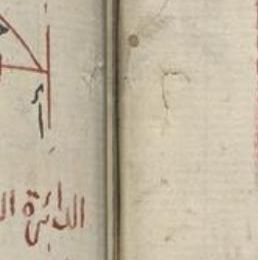 أ
الدائرة ال